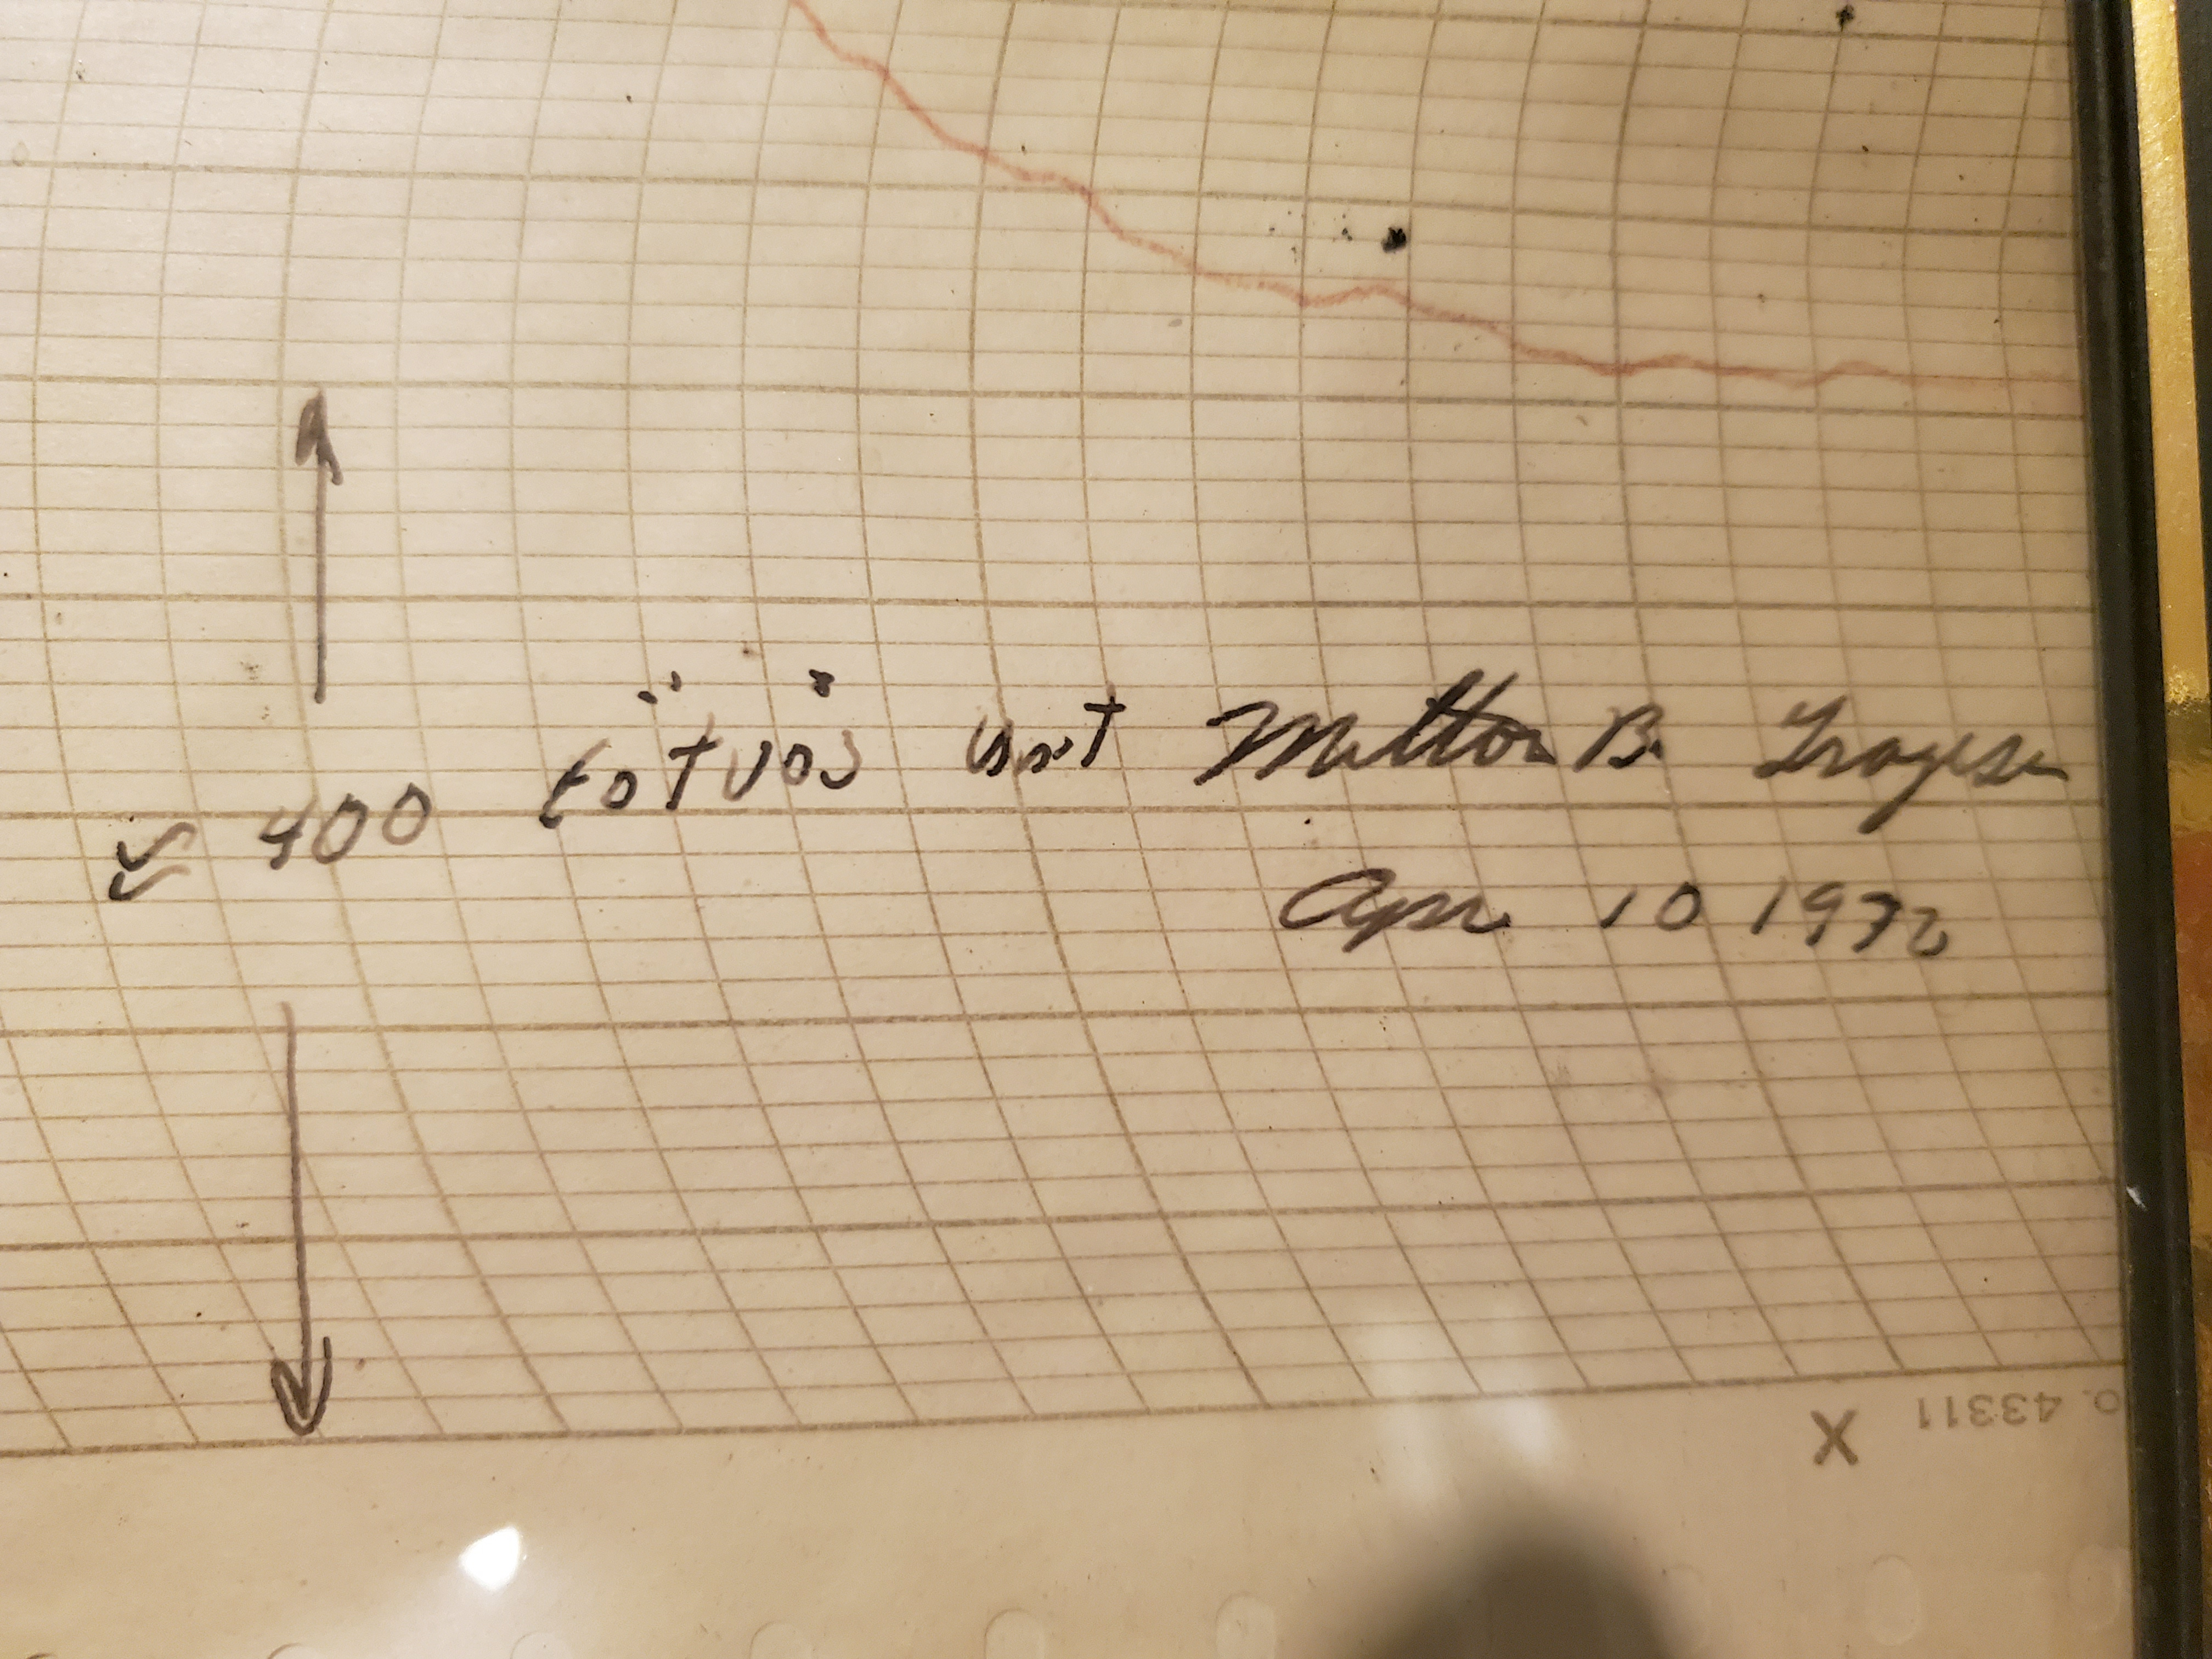 ≈ 400 Eötvös Unit Milton B. Trageser
Apr 10 1972
X
o. 43311